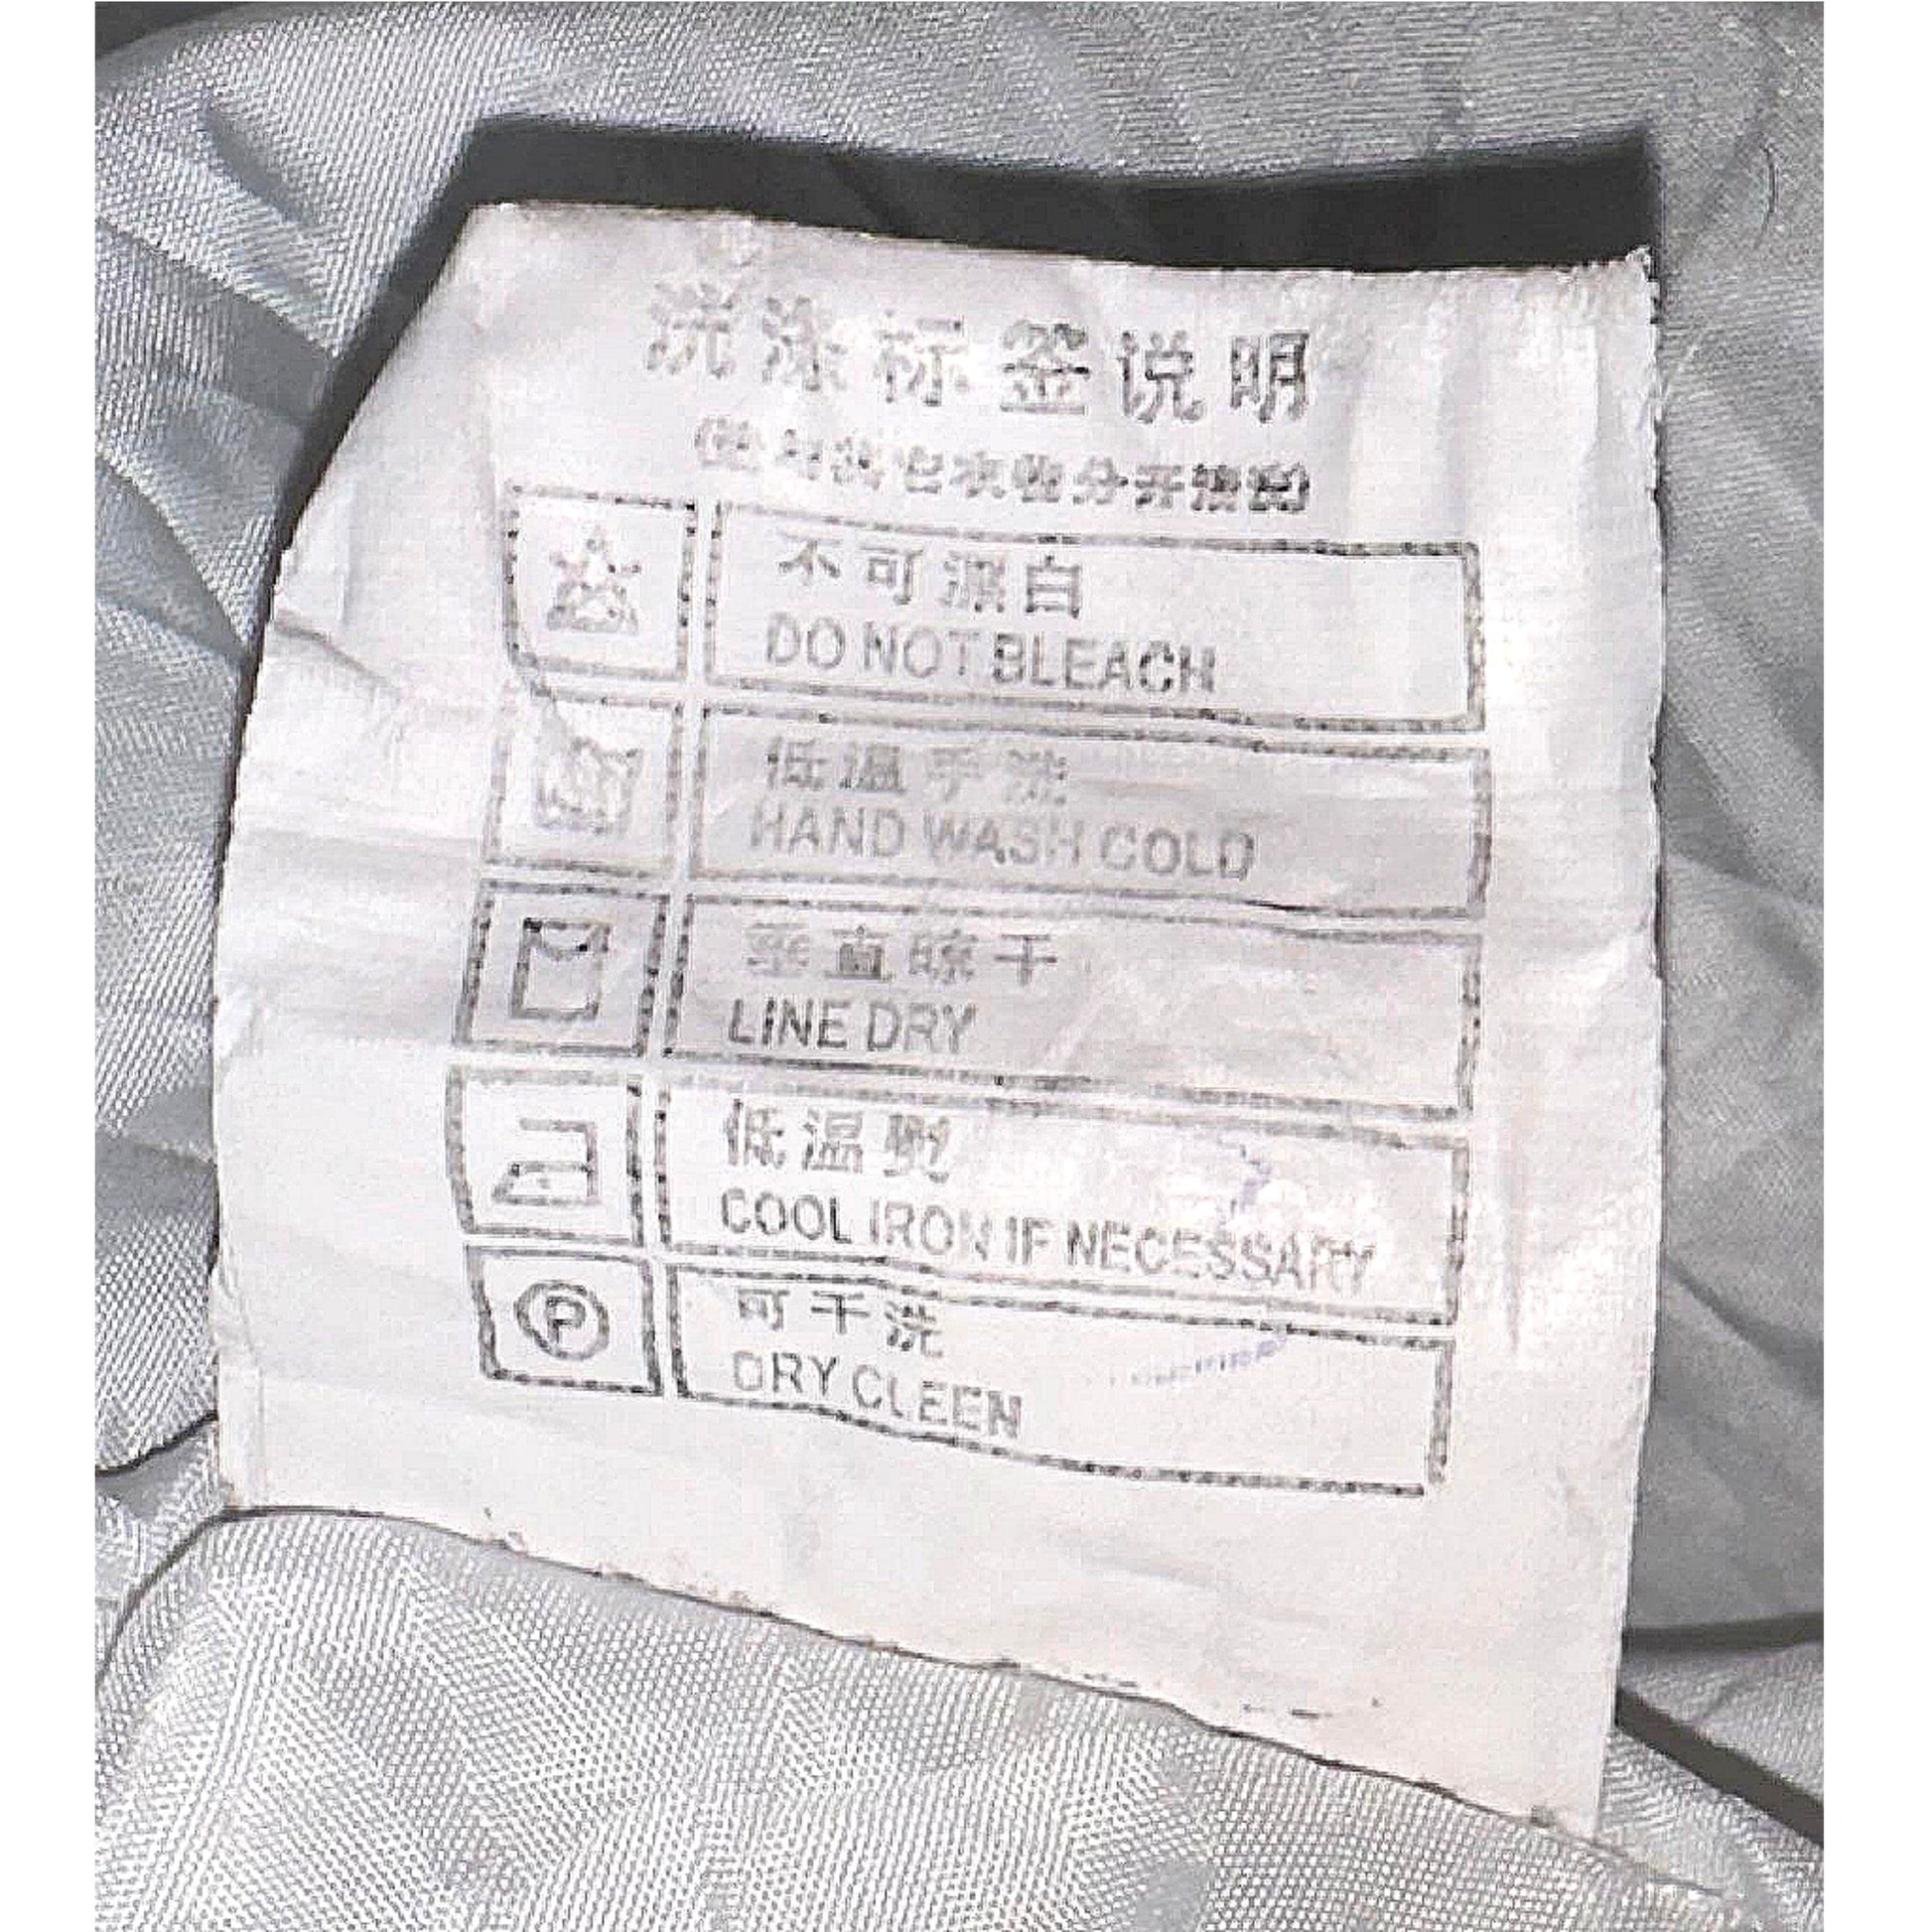 洗涤标签说明
(请与其它衣物分开清洗)
不可漂白
DO NOT BLEACH
低温手洗
HAND WASH COLD
垂直晾干
LINE DRY
低温熨
COOL IRON IF NECESSARY
P
可干洗
DRY CLEEN